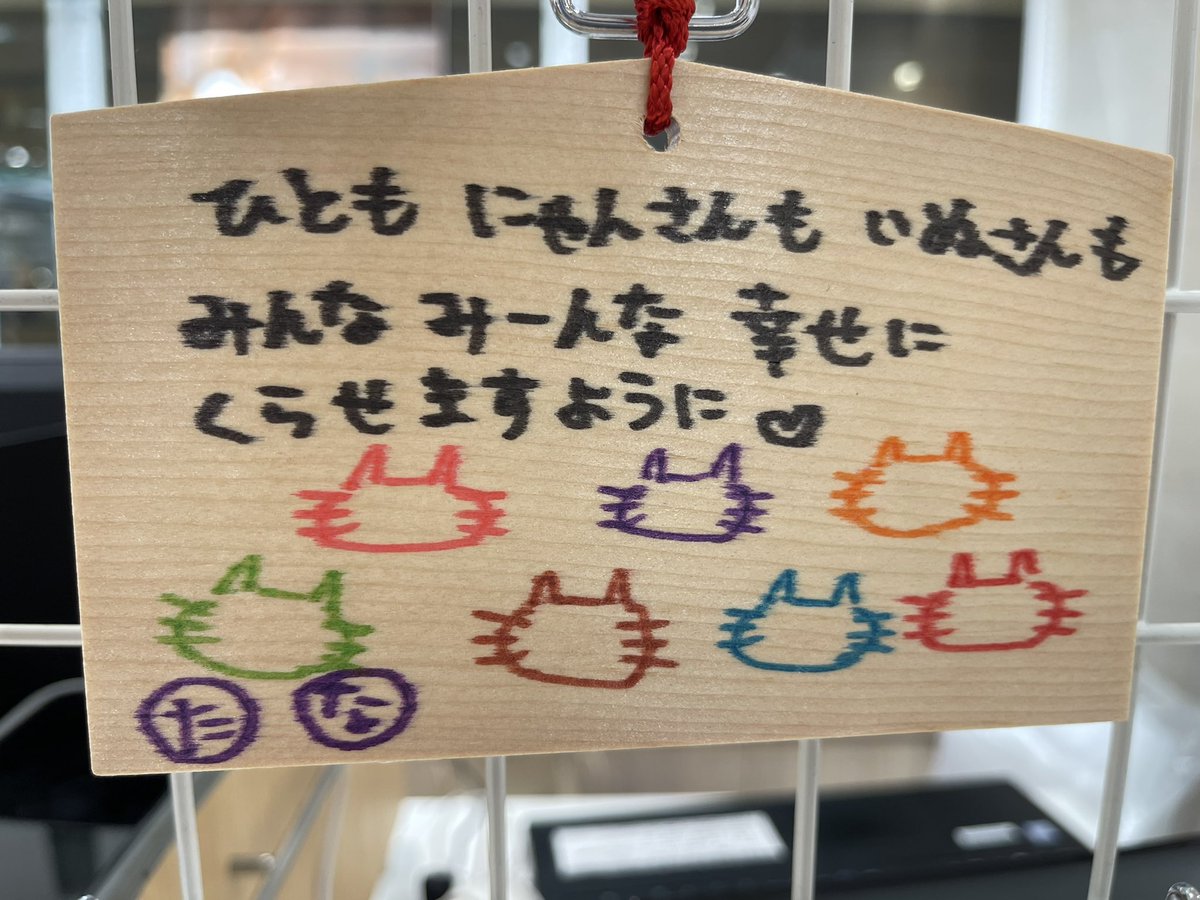 ひとも にゃんさんも いぬさんも
みんな みーんな 幸せに
くらせますように♡
た な